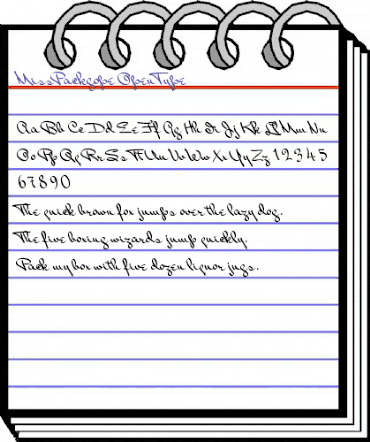 MissPackgope OpenType
Aa Bb Cc Dd Ee Ff Gg Hh Ii Jj Kk Ll Mm Nn
Oo Pp Qq Rr Ss Tt Uu Vv Ww Xx Yy Zz 1 2 3 4 5
6 7 8 9 0
The quick brown fox jumps over the lazy dog.
The five boxing wizards jump quickly.
Pack my box with five dozen liquor jugs.